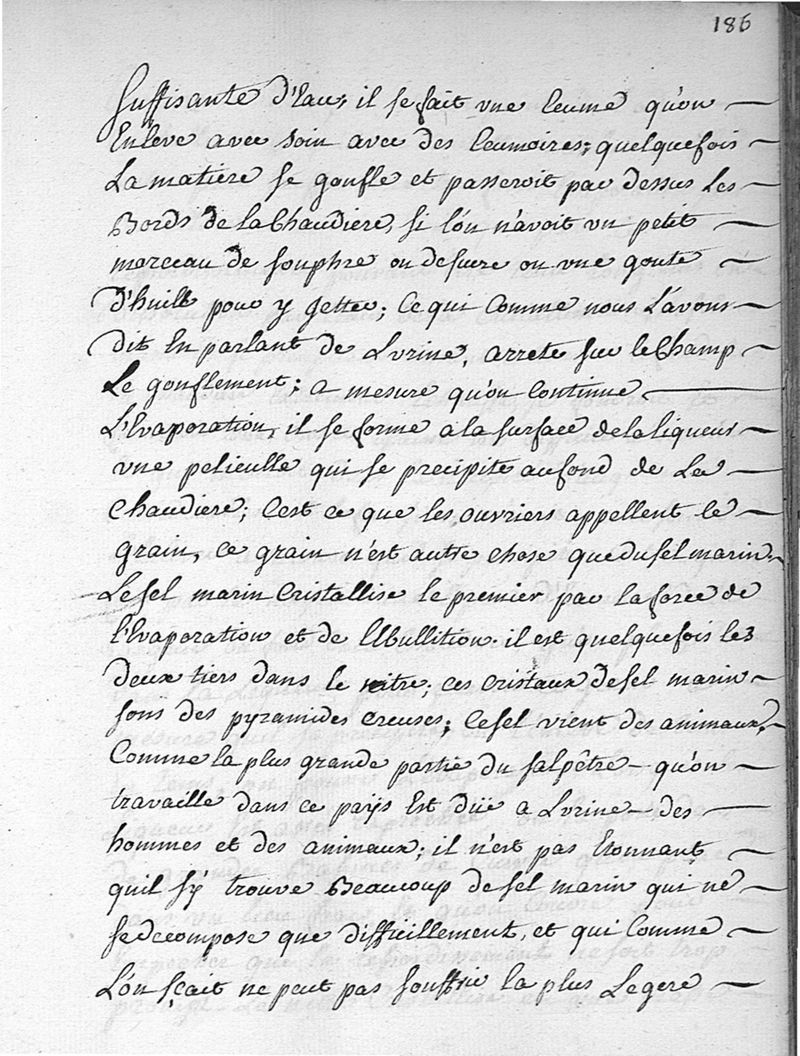 186
suffisante d'Eau, il se fait une Ecume qu'on
Enleve avec soin avec des Ecumoires; quelquefois
La matiere se gonfle et passeroit par dessus Les
Bords de la Chaudiere, si l'on n'avoit un petit
morceau de souphre ou de sucre ou une goute
d'huille pour y Jetter; Ce qui Comme nous L'avons
dit En parlant de L'vrine, arrete sur le Champ
Le gonflement; a mesure qu'on Continue
L'Evaporation, il se forme a la surface de la liqueur
vne peliculle qui se precipite au fond de La
Chaudiere; C'est ce que les ouvriers appellent le
grain, ce grain n'est autre chose que du sel marin.
Le sel marin Cristallise le premier par la force de
l'Evaporation et de l'Ebullition. il est quelquefois les
deux tiers dans le nitre; ces Cristaux de sel marin
sons des pyramides Creuses; Ce sel vient des animaux,
Comme la plus grande partie du salpêtre qu'on
travaille dans ce païs Est düe a L'vrine des
hommes et des animaux; il n'est pas Etonnant
quil s'y trouve Beaucoup de sel marin qui ne
se decompose que difficillement, et qui Comme
L'on sçait ne peut pas souffrir la plus Legere